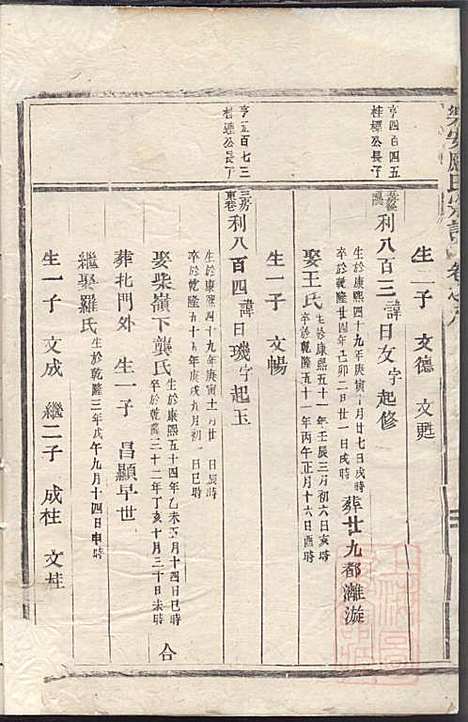 生一子 文德 文甦
亨四百四五
桂標公長子
利八百三諱日女字起修
生於康熙四十九年庚寅十月廿七日戌時
卒於乾隆廿四年己卯二月廿一日戌時
葬廿九都灘漩
娶王氏
生於康熙五十一年壬辰三月初六日亥時
卒於乾隆五十一年丙午正月十六日酉時
生一子 文暢
亨五百七三
桂 公長子
三房東巷
利八百四諱日璣字起玉
生於康熙四十九年庚寅十一月廿一日辰時
卒於乾隆五十五年庚戌九月初一日巳時
娶柴嶺下龔氏
生於康熙五十四年乙未五月十四日巳時
卒於乾隆三十二年丁亥十月三十日未時
合
葬北門外 生一子 昌顯早世
繼娶羅氏
生於乾隆三年戊午九月十四日申時
生一子 文成 繼二子 成柱 文桂